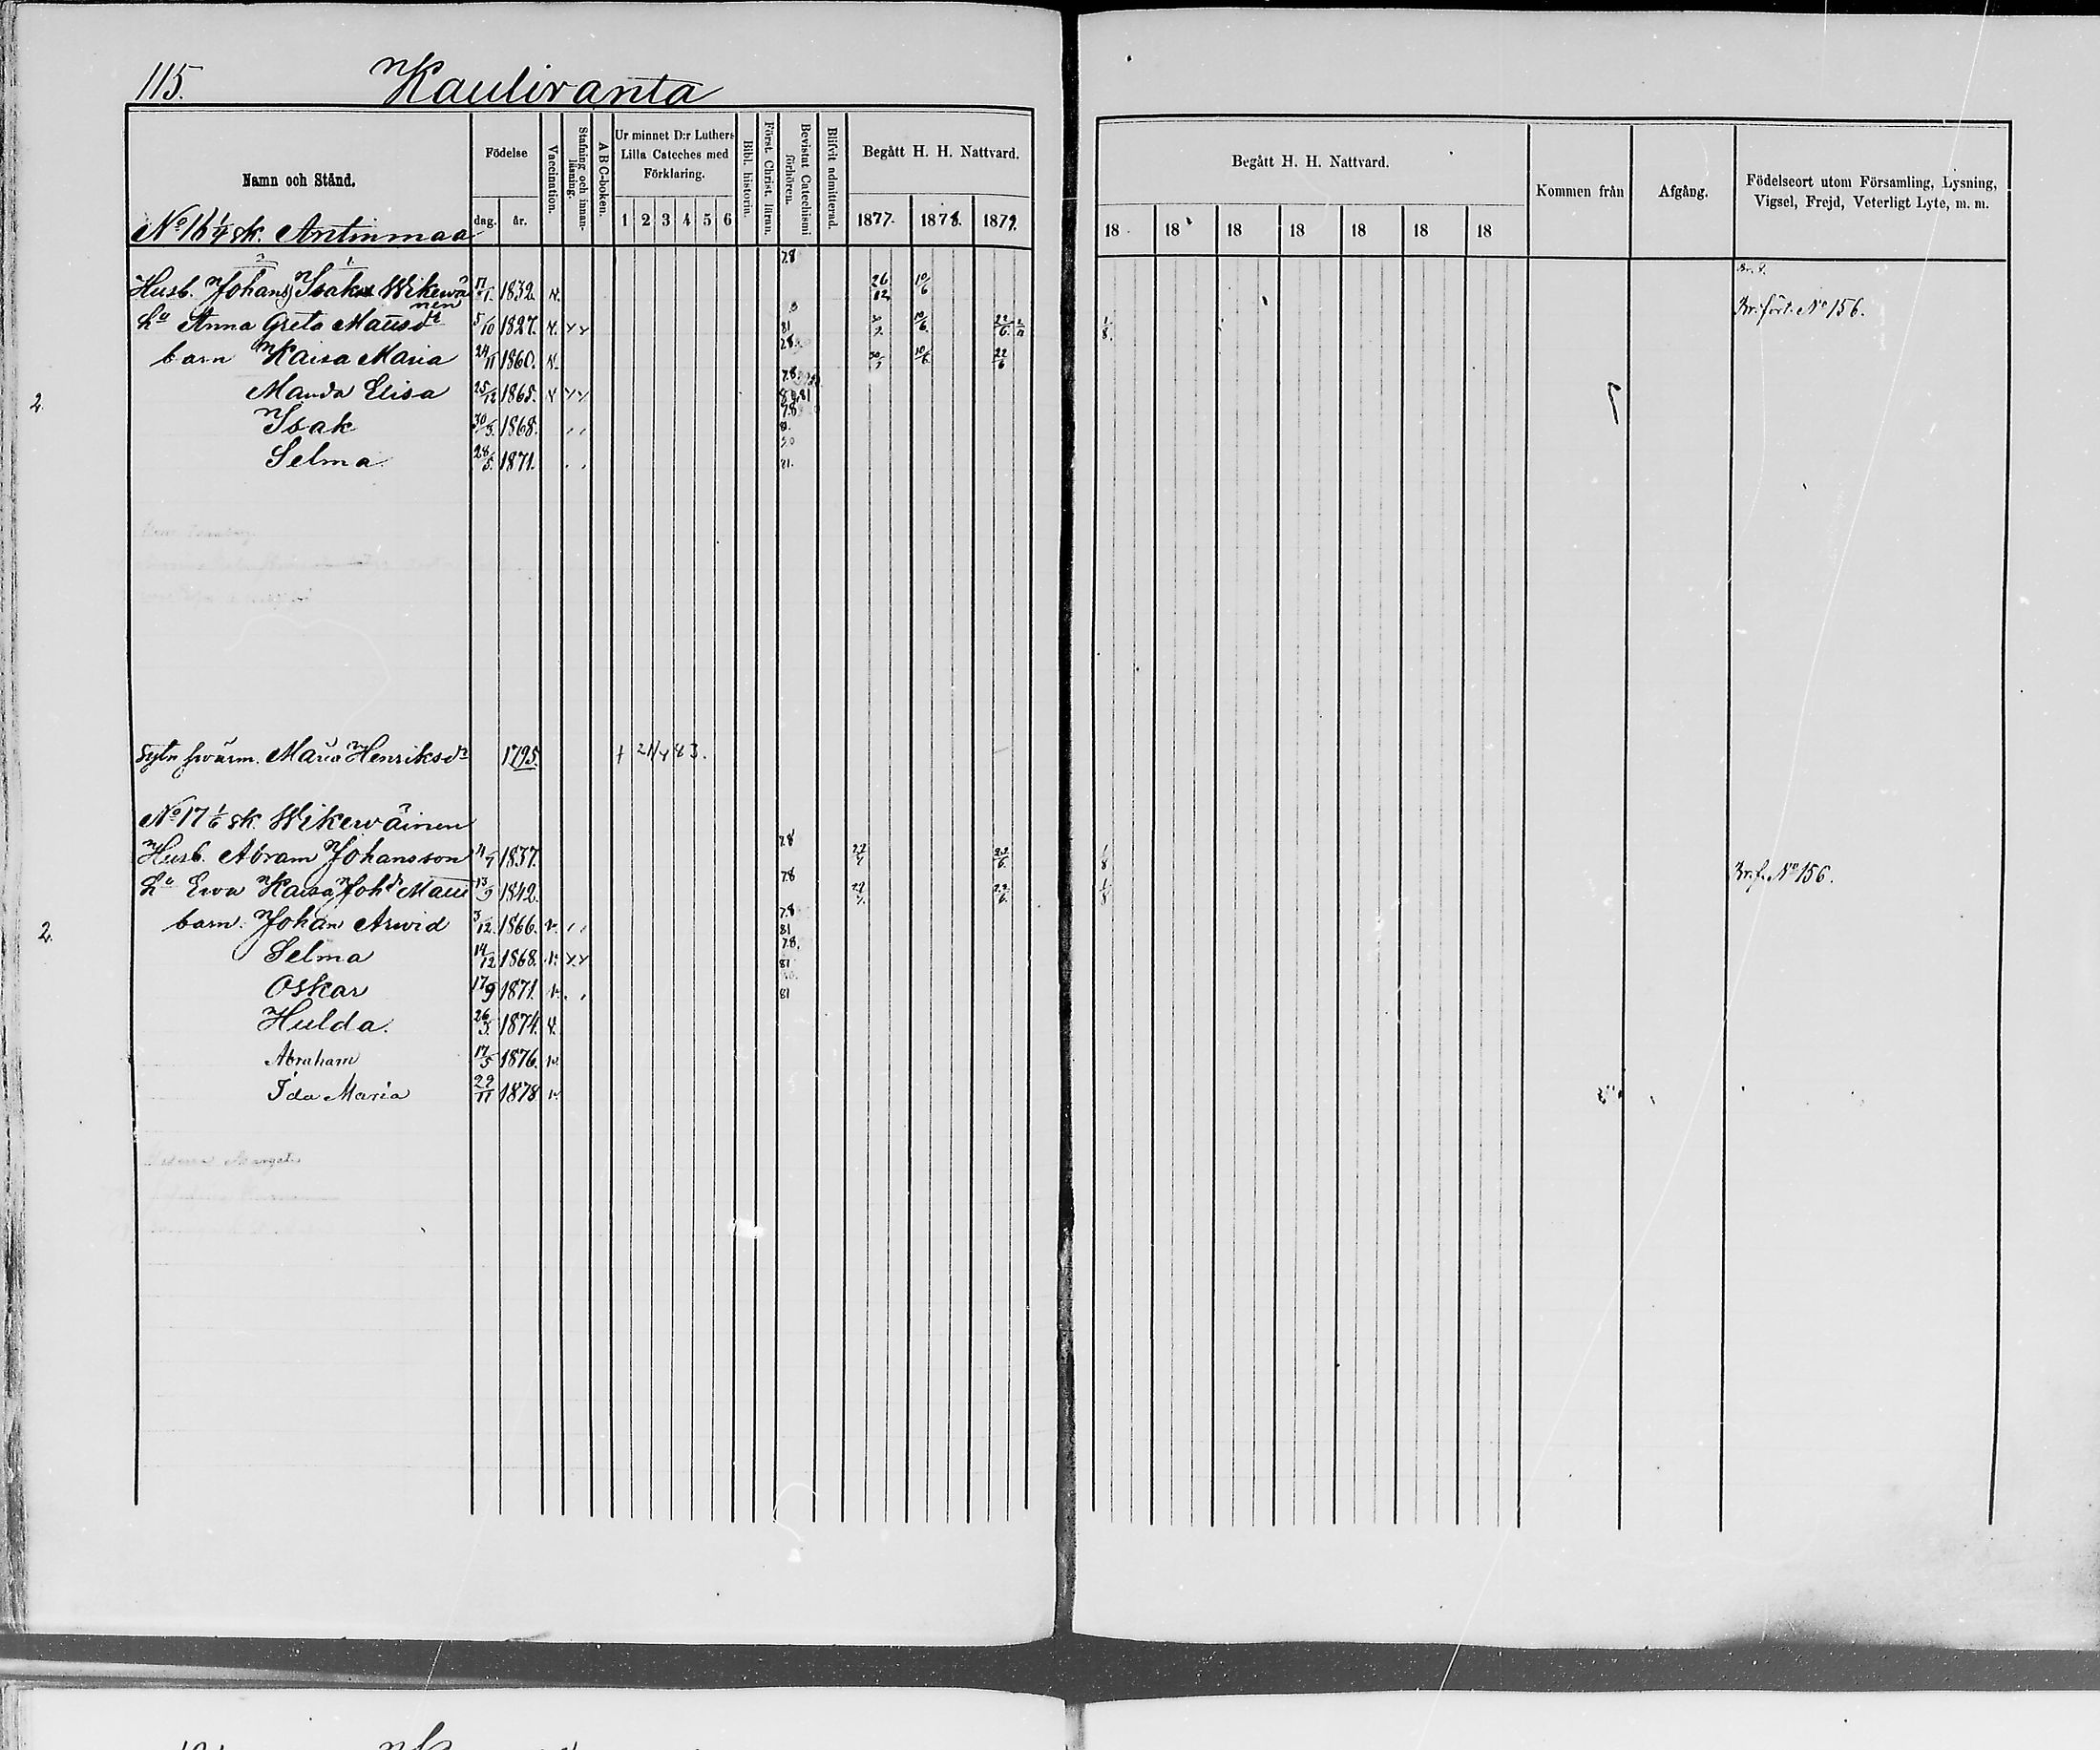 115. Kauliranta
Namn och Stånd.
Födelse
dag. år.
Vaccination.
Stafning och innanläsning.
ABC-boken.
Ur minnet D:r Luthers Lilla Cateches med Förklaring.
1 2 3 4 5 6
Bibl. historia.
Först. Christ. läran.
Bevistat Catechismi förhören.
Blifvit admitterad.
Begått H. H. Nattvard.
1877. 1878. 1879.
Begått H. H. Nattvard.
18 18 18 18 18 18 18
Kommen från
Afgång.
Födelseort utom Församling, Lysning, Vigsel, Frejd, Veterligt Lyte, m. m.
No 16 1/4 sk. Antinmaa
78
Husb. Johans Isaks Wikewäinen 17/1. 1832. v. 26/12 10/6
Br. fört. No 156.
Hu Anna Greta Mausdr 5/10 1827. v. x x 81 10/6. 22/6. 1/8.
barn Kaisa Maria 24/11 1860. v. 10/6 22/6
2. Manda Elisa 25/12 1865. v x x 78 81
Isak 30/3. 1868. 78
Selma 28/5. 1871. 81.
Maria Henriksdr 1795. † 21/4 83.
No 17 1/6 sk. Wikewäinen
Husb. Abram Johansson 1837. 78 22/6. 1/8
Hu Ewa Kaisa Johdr Maui 13/9 1842. 78 22/6. 1/8 Br. f. No 156.
2. barn: Johan Arwid 3/12. 1866. v. 78 81
Selma 14/12 1868. v. x x 78. 81
Oskar 17/9 1871. v. 81
Hulda. 26/3. 1874. v.
Abraham 17/5 1876. v.
Ida Maria 29/11 1878 v.